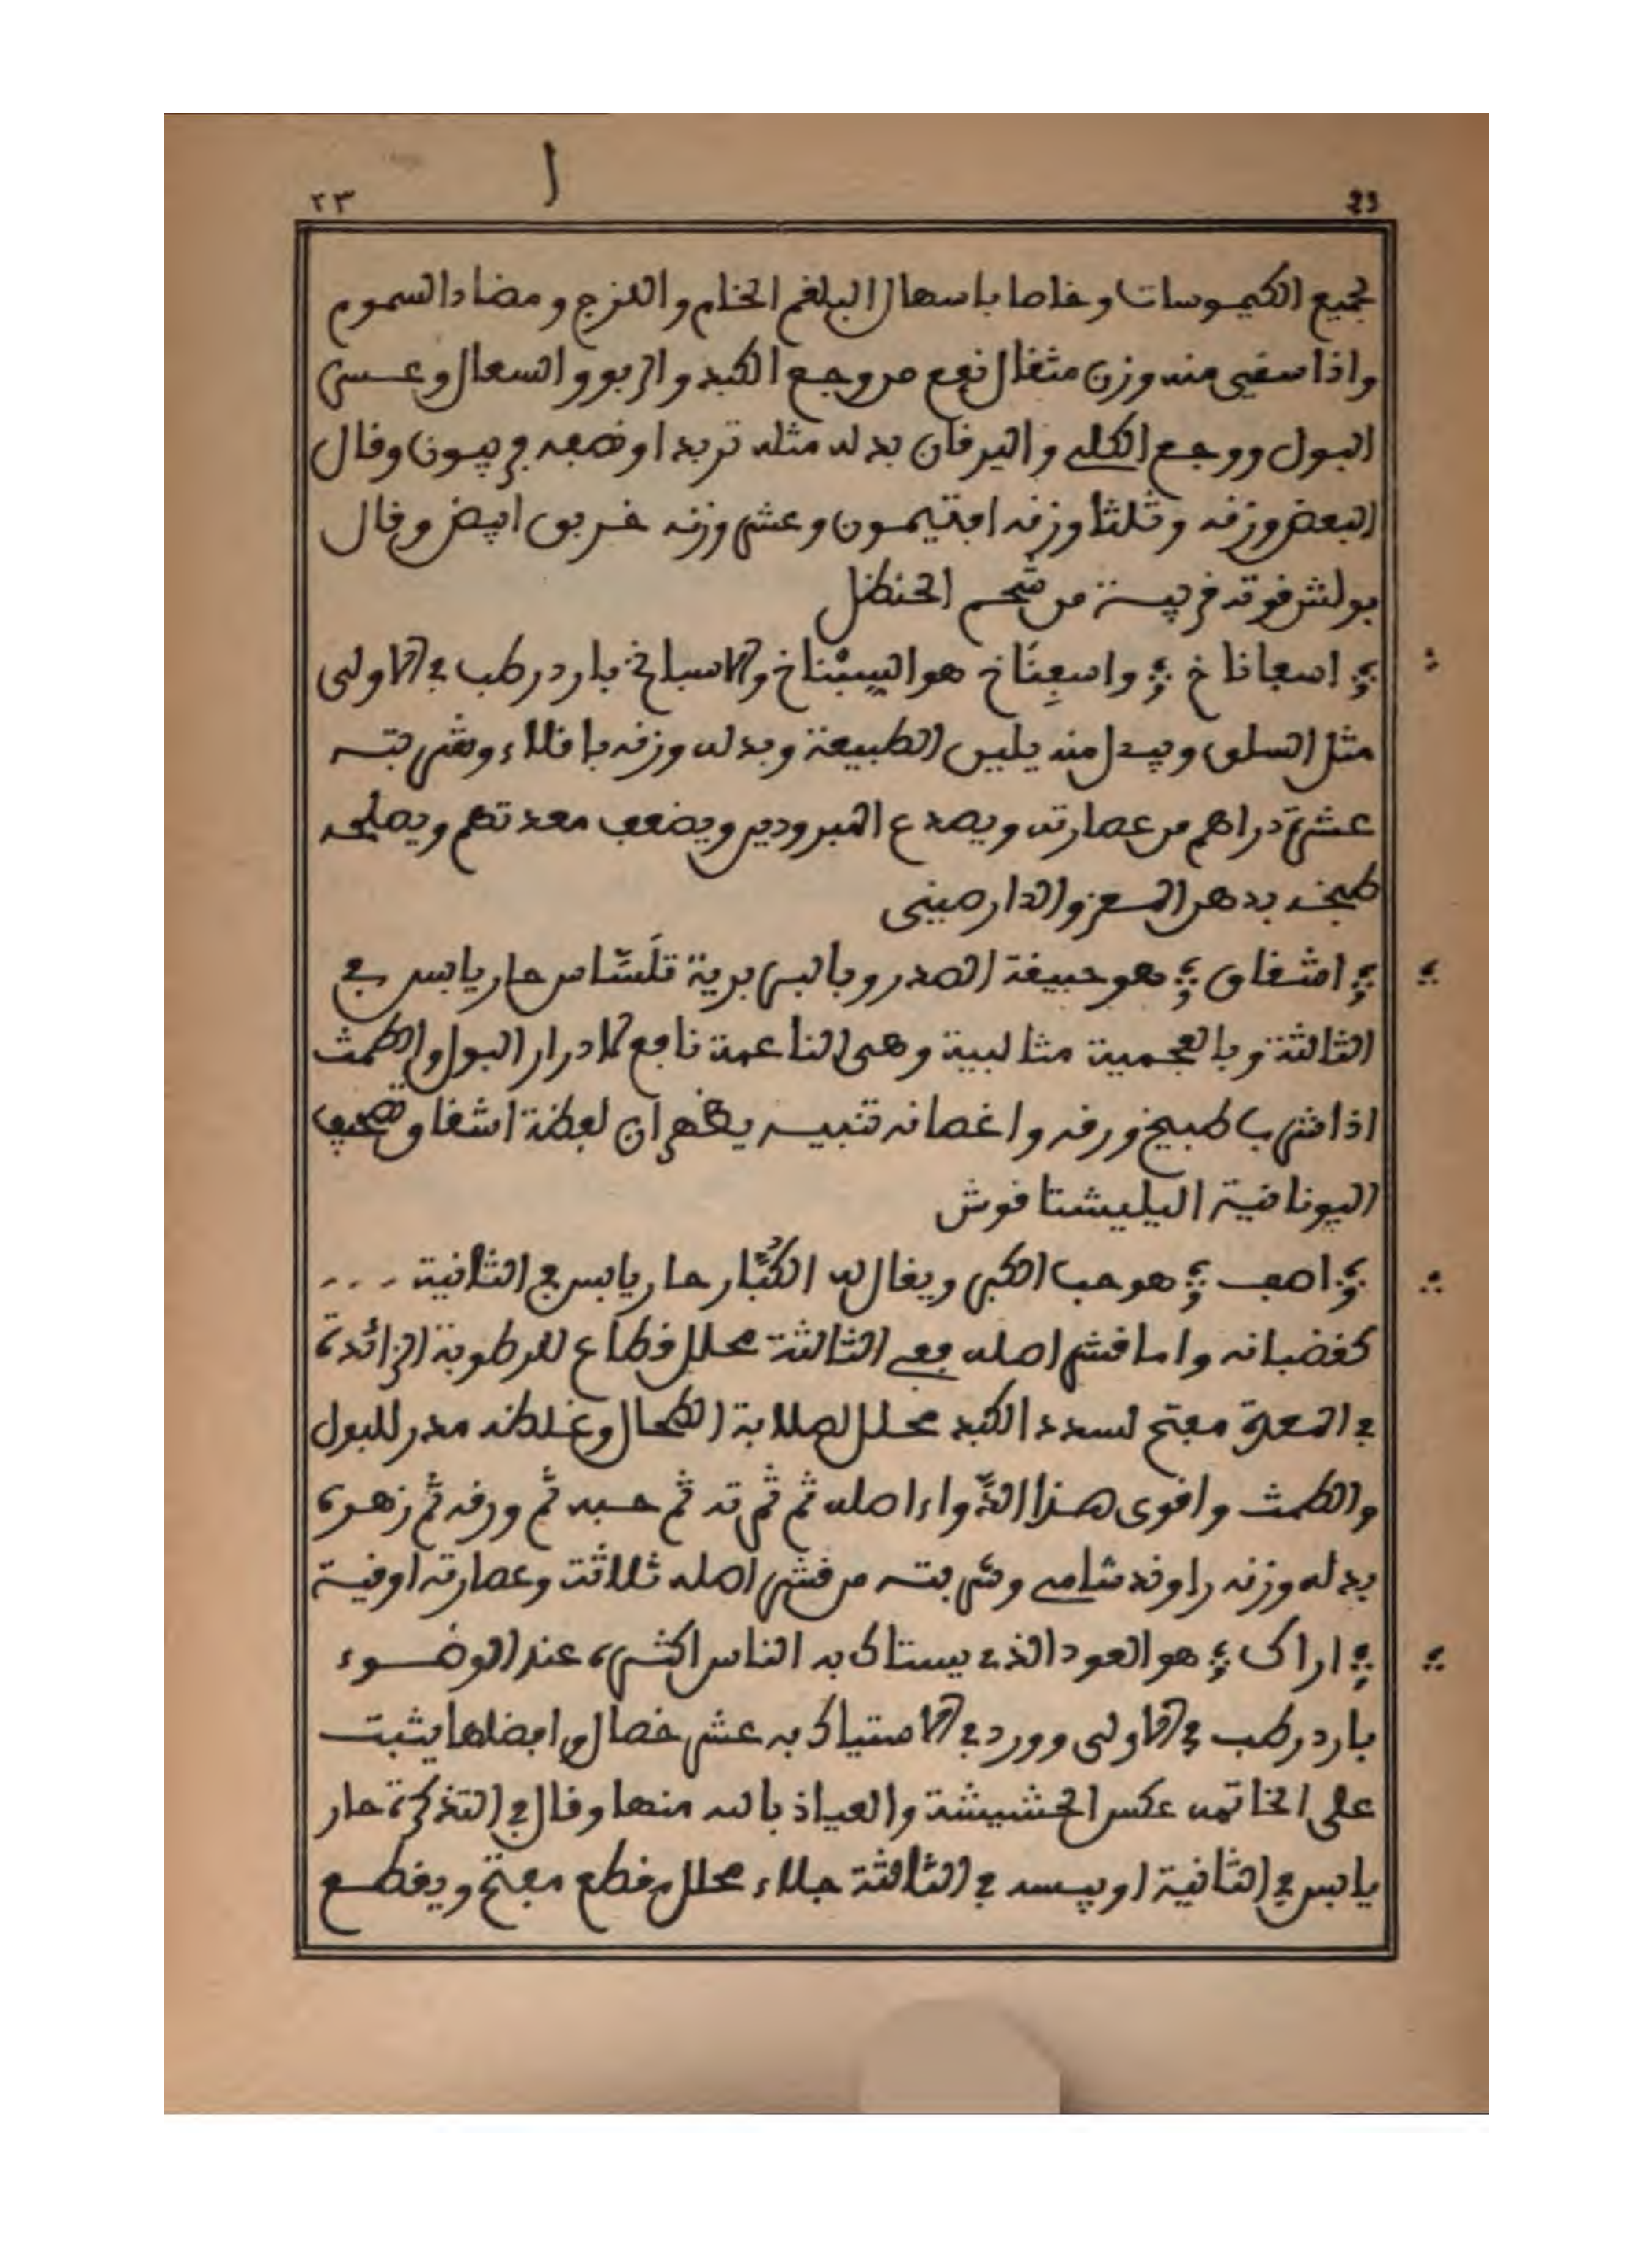 ٢٣ ا 23
لجميع الكيموسات وخاصا باسهال البلغم الخام واللزج ومضاد السموم
واذا سقي منه وزن مثقال نفع من وجع الكبد والربو والسعال وعسر
البول ووجع الكلى واليرقان بدله مثله تربد او نصفه وقال
البعض وزنه وثلثا وزنه افتيمون وعشر وزنه خربق ابيض وقال
بولش قوته قريبة من شحم الحنظل
؞ اسفاناخ ؞ واسفِنَاخ هو السبناخ والاسباخ بارد رطب في الاولى
مثل السلق ويبدل منه يلين الطبيعة وبدله وزنه باقلاء وشربته
عشرة دراهم من عصارته ويصدع المبرودين ويضعف معدتهم ويصلحه
طبخه بدهن اللوز والدارصيني
؞ اشفاق ؞ هو حبيقة الصدر وبالبربرية تلَسَّاس حار يابس في
الثالثة وبالعجمية مثالبية وهي الناعمة نافع لادرار البول والطمث
اذا شرب طبيخ ورقه واغصانه تنبيه يظهر ان لفظة اشفاق تصحيف
اليونانية اليليشتافوش
؞ اصف ؞ هو حب الكبر ويقال له الكُبَّار حار يابس في الثانية ...
كقضبانه واما قشر اصله ففي الثالثة محلل قطاع للرطوبة الزائدة
في المعدة مفتح لسدد الكبد محلل لصلابة الطحال وغلظه مدر للبول
والطمث واقوى هذا الدَّواء اصله ثم ثمرته ثم حبه ثم ورقه ثم زهره
بدله وزنه راوند شامي وشربته من قشر اصله ثلاثة وعصارته اوقية
؞ اراك ؞ هو العود الذي يستاك به الناس اكثره عند الوضوء
بارد رطب في الاولى وورد في الاستياك به عشر خصال وافضلها يثبت
على الخاتمه عكس الحشيشة والعياذ بالله منها وقال في التذكرة حار
يابس في الثانية او يبسه في الثالثة جلاء محلل مقطع مفتح ويقطع